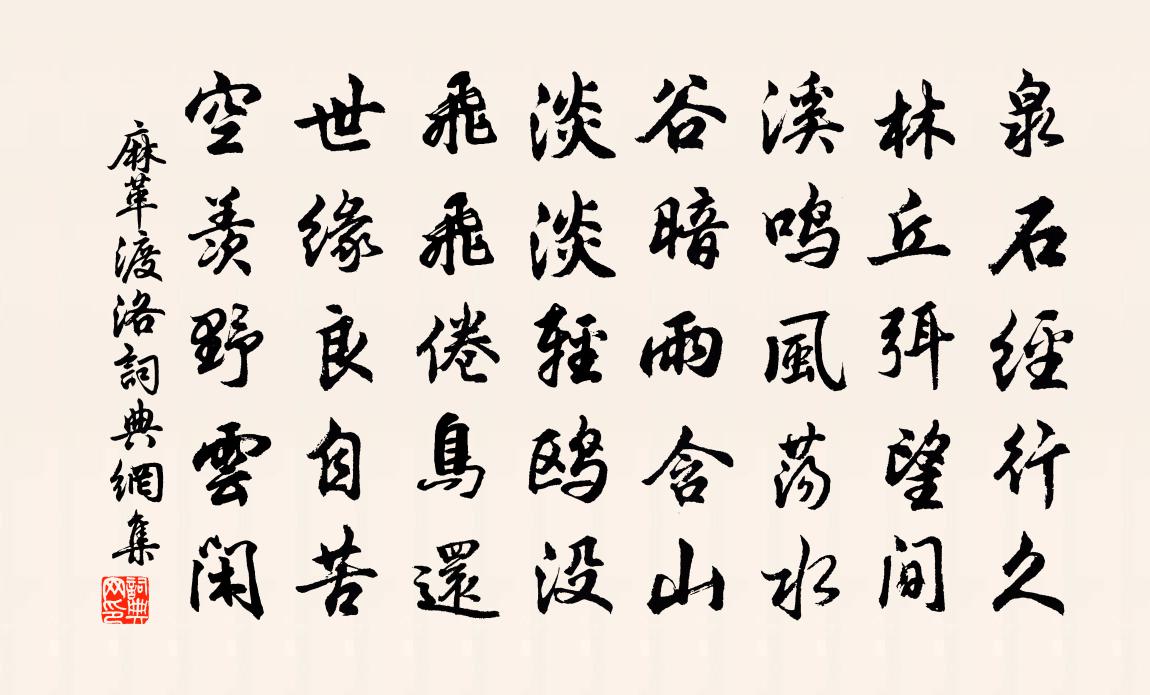 泉石經行久
林丘弭望間
溪鳴風蕩水
谷暗雨含山
淡淡輕鷗没
飛飛倦鳥還
世緣良自苦
空羨野雲閑
麻革渡洛詞典網集
詞典網印